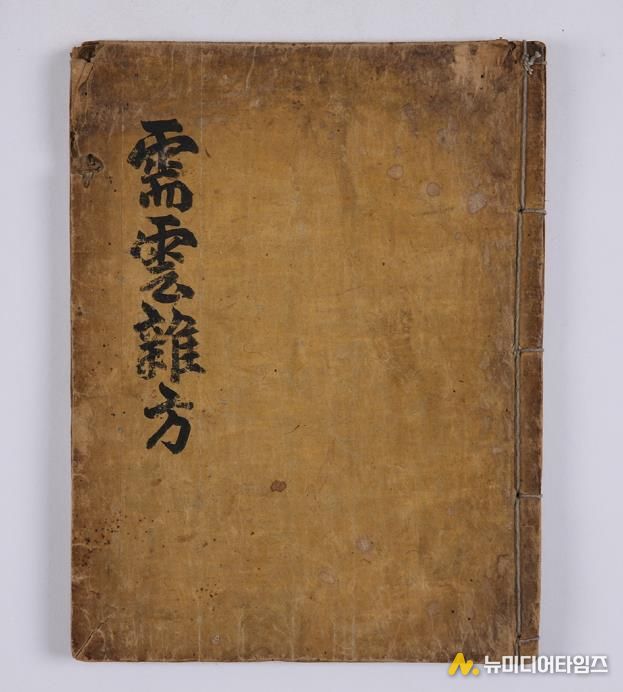 需雲雜方
뉴미디어타임즈